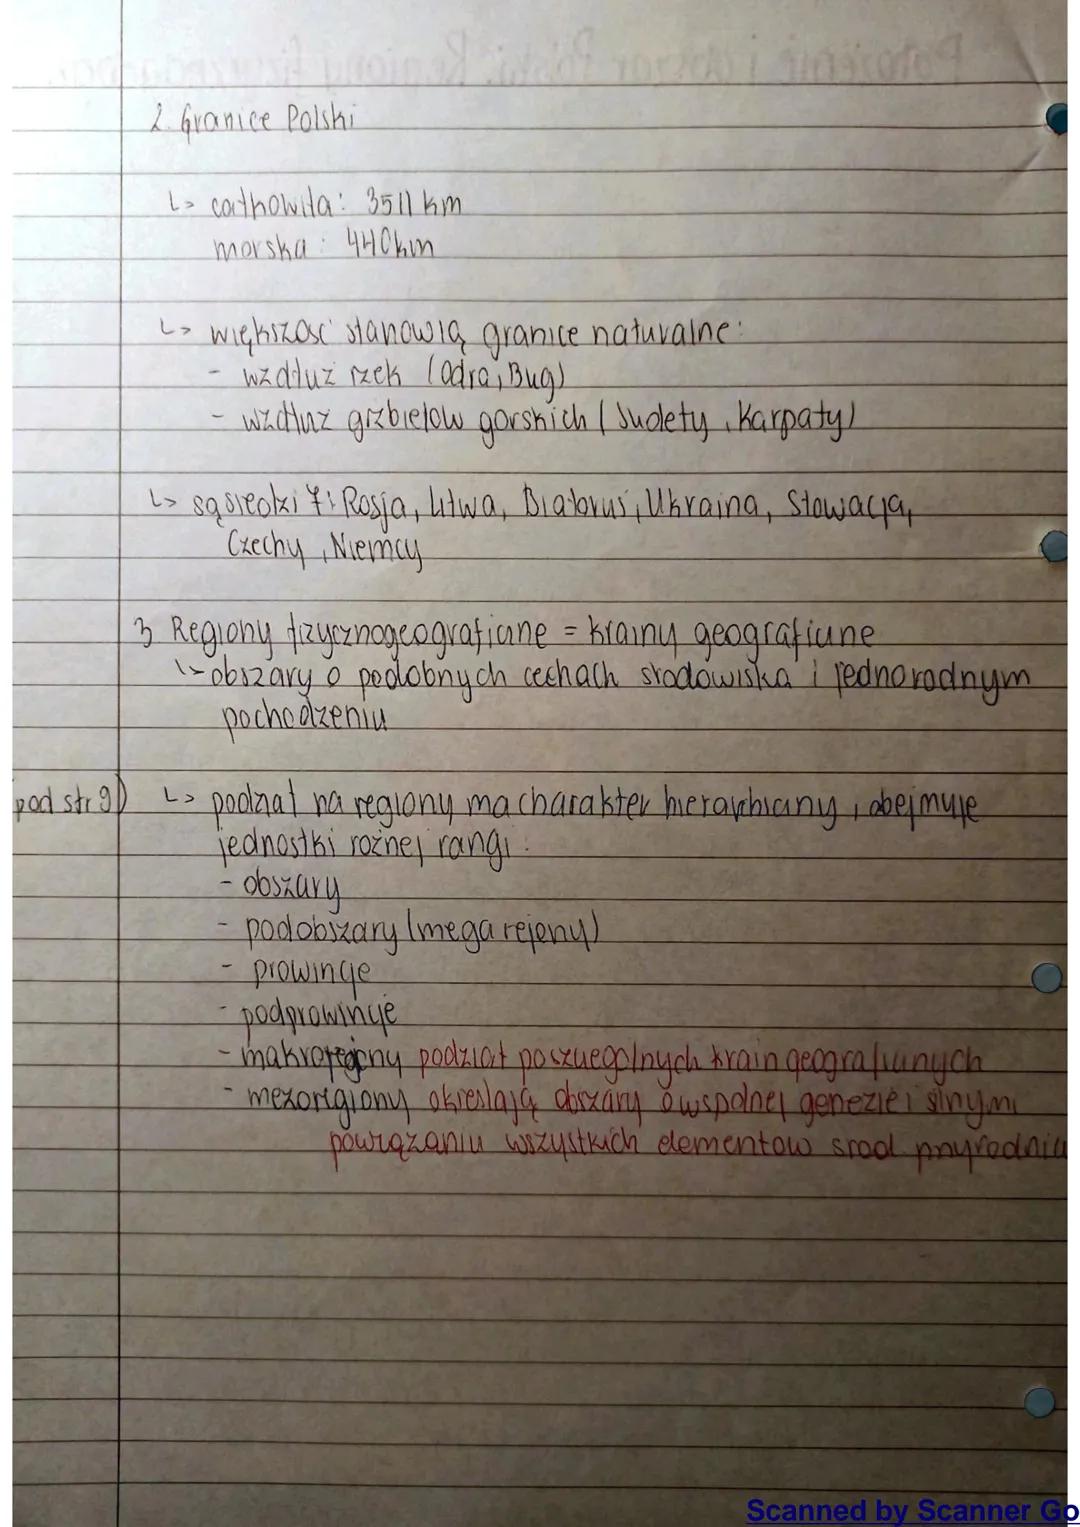 2. Granice Polski
↳ całkowita: 3511 km
morska: 440km
↳ większość stanowią granice naturalne:
- wzdłuż rzek (Odra, Bug)
- wzdłuż grzbietow gorskich (Sudety, Karpaty)
↳ sąsiedzi 7: Rosja, Litwa, Białoruś, Ukraina, Słowacja,
Czechy, Niemcy
3 Regiony fizycznogeograficzne = krainy geograficzne
↳ obszary o podobnych cechach srodowiska i jednorodnym
pochodzeniu
pod str 9) ↳ podział na regiony ma charakter hierarchiczny, obejmuje
jednostki rożnej rangi:
- obszary
- podobszary (mega rejony)
- prowincje
- podprowincje
- makroregiony podział poszczegolnych krain geograficznych
- mezoregiony okreslają obszary o wspolnej genezie i silnymi
powiązaniu wszystkich elementow srod. przyrodnicz
Scanned by Scanner Go